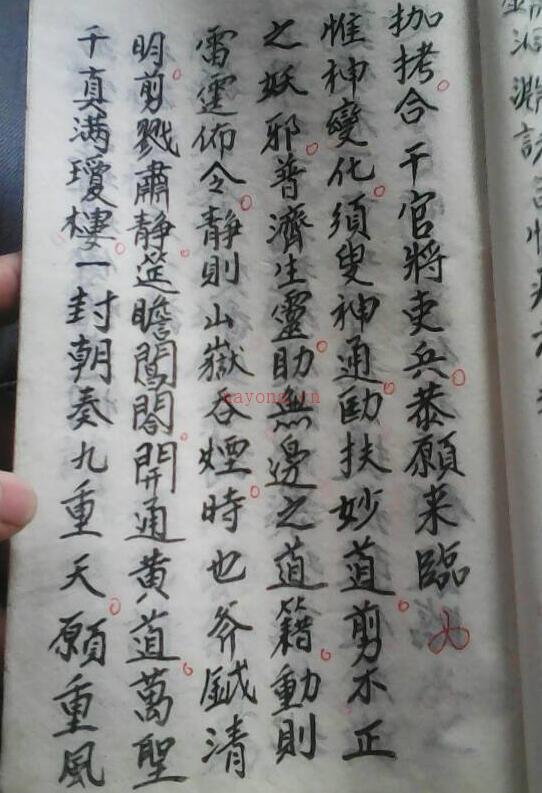 枷拷合干官將吏兵恭願来臨
惟神變化須叟神通扶妙道剪不正
之妖邪普濟生靈助無邊之道籍動則
雷霆佈令静則山嶽吞煙時也斧鉞清
明剪戮肅静筵瞻閶閤開通黄道萬聖
千真满瓊樓一封朝奏九重天願重風